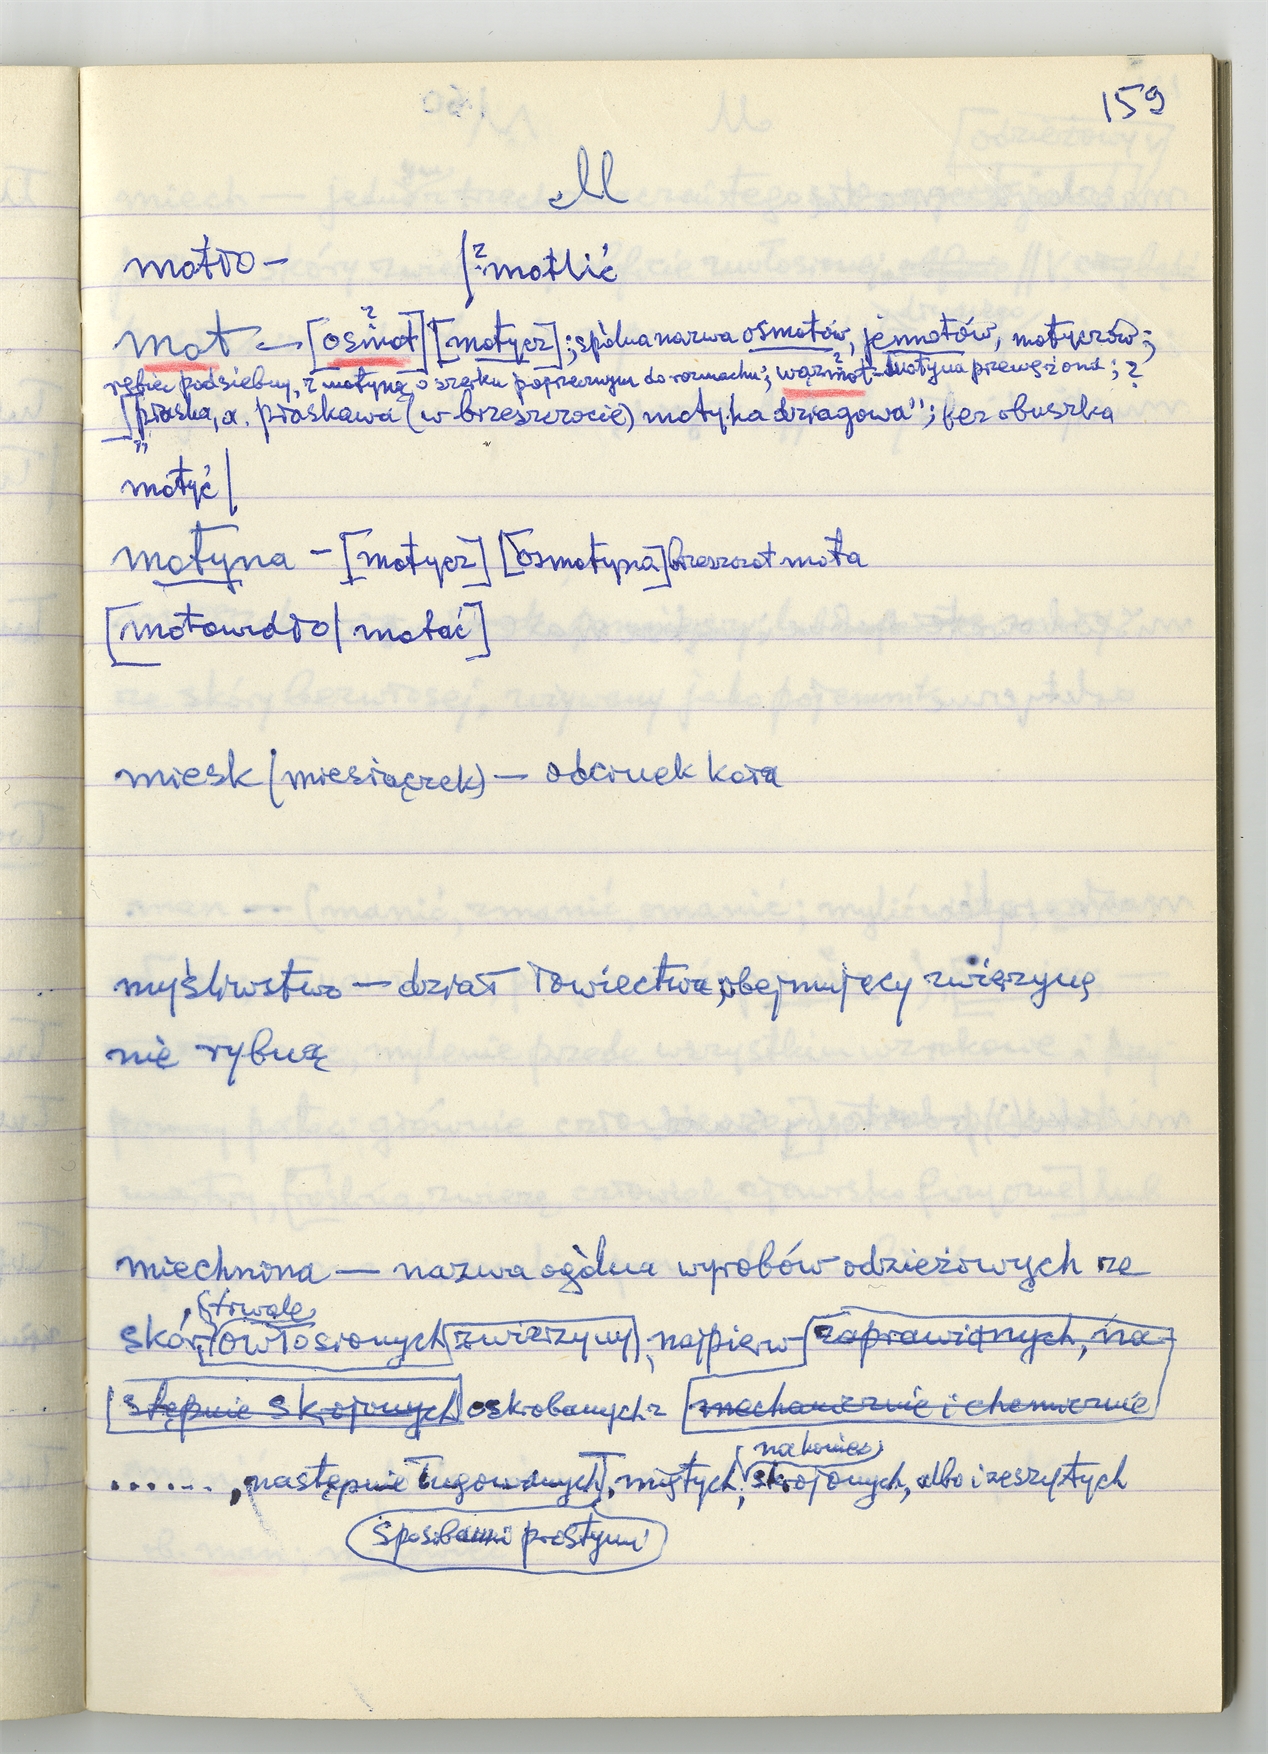 159
M
motło – |? motlić
mot – [osmot] [motycz]; spólna nazwa osmotów, jemnotów, motyczów;
rębiec podsiebny, z motyną o ostrzu poprzecznym do rozmachu; wązmot – motyna przewężona; ?
[„płaska, a. płaskawa (w brzeszczocie) motyka dziagowa”; bez obuszka
motyć |
motyna – [motycz] [osmotyna] brzeszczot mota
[motowidło | motać]
miesk (miesiączek) – odcinek koła
myśliwstwo – dział łowiectwa, obejmujący zwierzynę
nie rybną
miechnina – nazwa ogólna wyrobów odzieżowych ze
trwale
skór, owłosionych zwierzyny, najpierw zaprawianych, na-
stępnie skrojonych oskrobanych z mechanicznie i chemicznie
nakoniec
......, następnie ługowanych, miętych, skrojonych, albo i zeszytych
sposobami prostymi